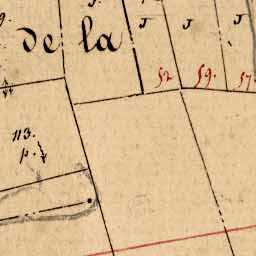 J. J J J
de la
52 59. 57.
113.
p.